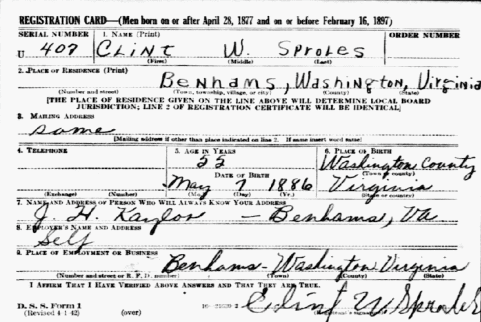 REGISTRATION CARD—(Men born on or after April 28, 1877 and on or before February 16, 1897)
SERIAL NUMBER 1. NAME (Print) ORDER NUMBER
U 407 CLINT W. SPROLES
(First) (Middle) (Last)
2. PLACE OF RESIDENCE (Print)
BENHAMS, WASHINGTON, VIRGINIA
(Number and street) (Town, township, village, or city) (County) (State)
[THE PLACE OF RESIDENCE GIVEN ON THE LINE ABOVE WILL DETERMINE LOCAL BOARD
JURISDICTION; LINE 2 OF REGISTRATION CERTIFICATE WILL BE IDENTICAL]
3. MAILING ADDRESS
same
[Mailing address if other than place indicated on line 2. If same insert word same]
4. TELEPHONE 5. AGE IN YEARS 6. PLACE OF BIRTH
55 Washington County
DATE OF BIRTH (Town or county)
May 7 1886 Virginia
(Exchange) (Number) (Mo.) (Day) (Yr.) (State or country)
7. NAME AND ADDRESS OF PERSON WHO WILL ALWAYS KNOW YOUR ADDRESS
J. H. Kaylor — Benhams, Va
8. EMPLOYER'S NAME AND ADDRESS
Self
9. PLACE OF EMPLOYMENT OR BUSINESS
Benhams - Washington Virginia
(Number and street or R. F. D. number) (Town) (County) (State)
I AFFIRM THAT I HAVE VERIFIED ABOVE ANSWERS AND THAT THEY ARE TRUE.
D. S. S. Form 1
(Revised 4-1-42) (over) Clint W. Sproles